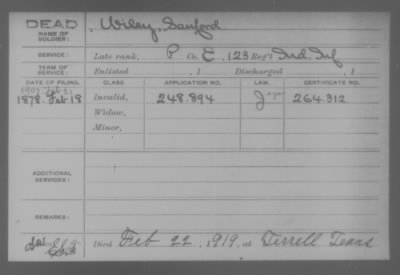 DEAD
NAME OF
SOLDIER:
Wiley, Sanford
SERVICE:
Late rank, P Co. E, 123 Reg't Ind. Inf
TERM OF
SERVICE:
Enlisted , 1 Discharged , 1
DATE OF FILING. CLASS APPLICATION NO. LAW. CERTIFICATE NO.
1878. Feb 18 Invalid, 248.894 264.312
Widow,
Minor,
ADDITIONAL
SERVICES:
REMARKS:
Died Feb 22, 1919, at Terrell Texas